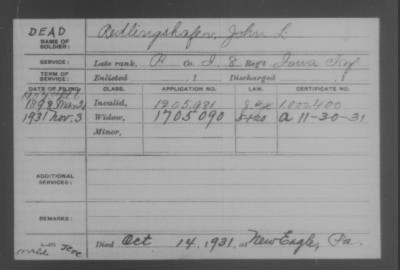 DEAD
NAME OF SOLDIER: Redlingshafer, John L.
SERVICE: Late rank, P Co. I, 8 Reg't Iowa Inf
TERM OF SERVICE: Enlisted , 1 Discharged , 1
DATE OF FILING. CLASS. APPLICATION NO. LAW. CERTIFICATE NO.
1892 Invalid, 1205,921 1.000400
1931 Nov. 3 Widow, 1705090 A 11-30-31
Minor,
ADDITIONAL SERVICES:
REMARKS:
Died Oct 14, 1931, at New Eagle, Pa.